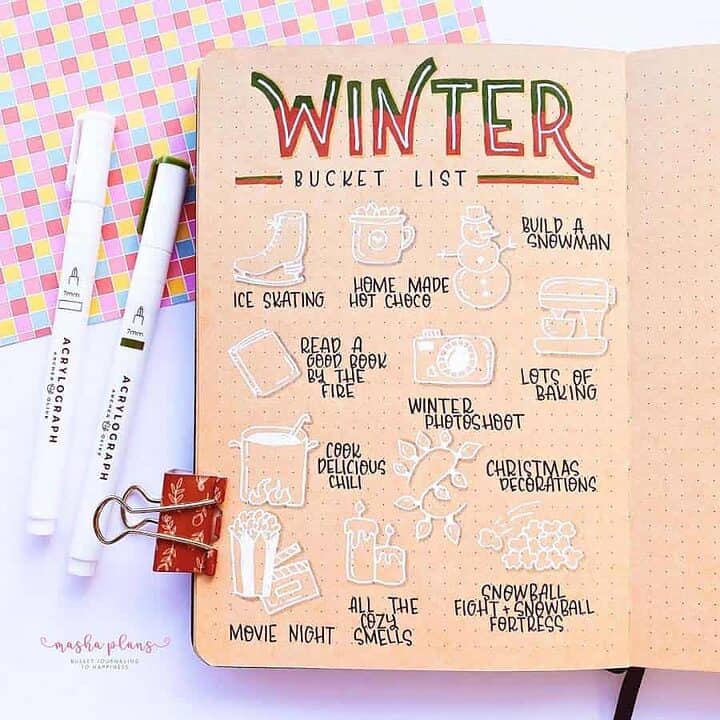 WINTER
BUCKET LIST
ICE SKATING
HOME MADE
HOT CHOCO
BUILD A
SNOWMAN
READ A
GOOD BOOK
BY THE
FIRE
WINTER
PHOTOSHOOT
LOTS OF
BAKING
COOK
DELICIOUS
CHILI
CHRISTMAS
DECORATIONS
MOVIE NIGHT
ALL THE
COZY
SMELLS
SNOWBALL
FIGHT + SNOWBALL
FORTRESS
1mm
ACRYLOGRAPH
ARCHER & OLIVE
7mm
ACRYLOGRAPH
ARCHER & OLIVE
masha plans
BULLET JOURNALING
TO HAPPINESS